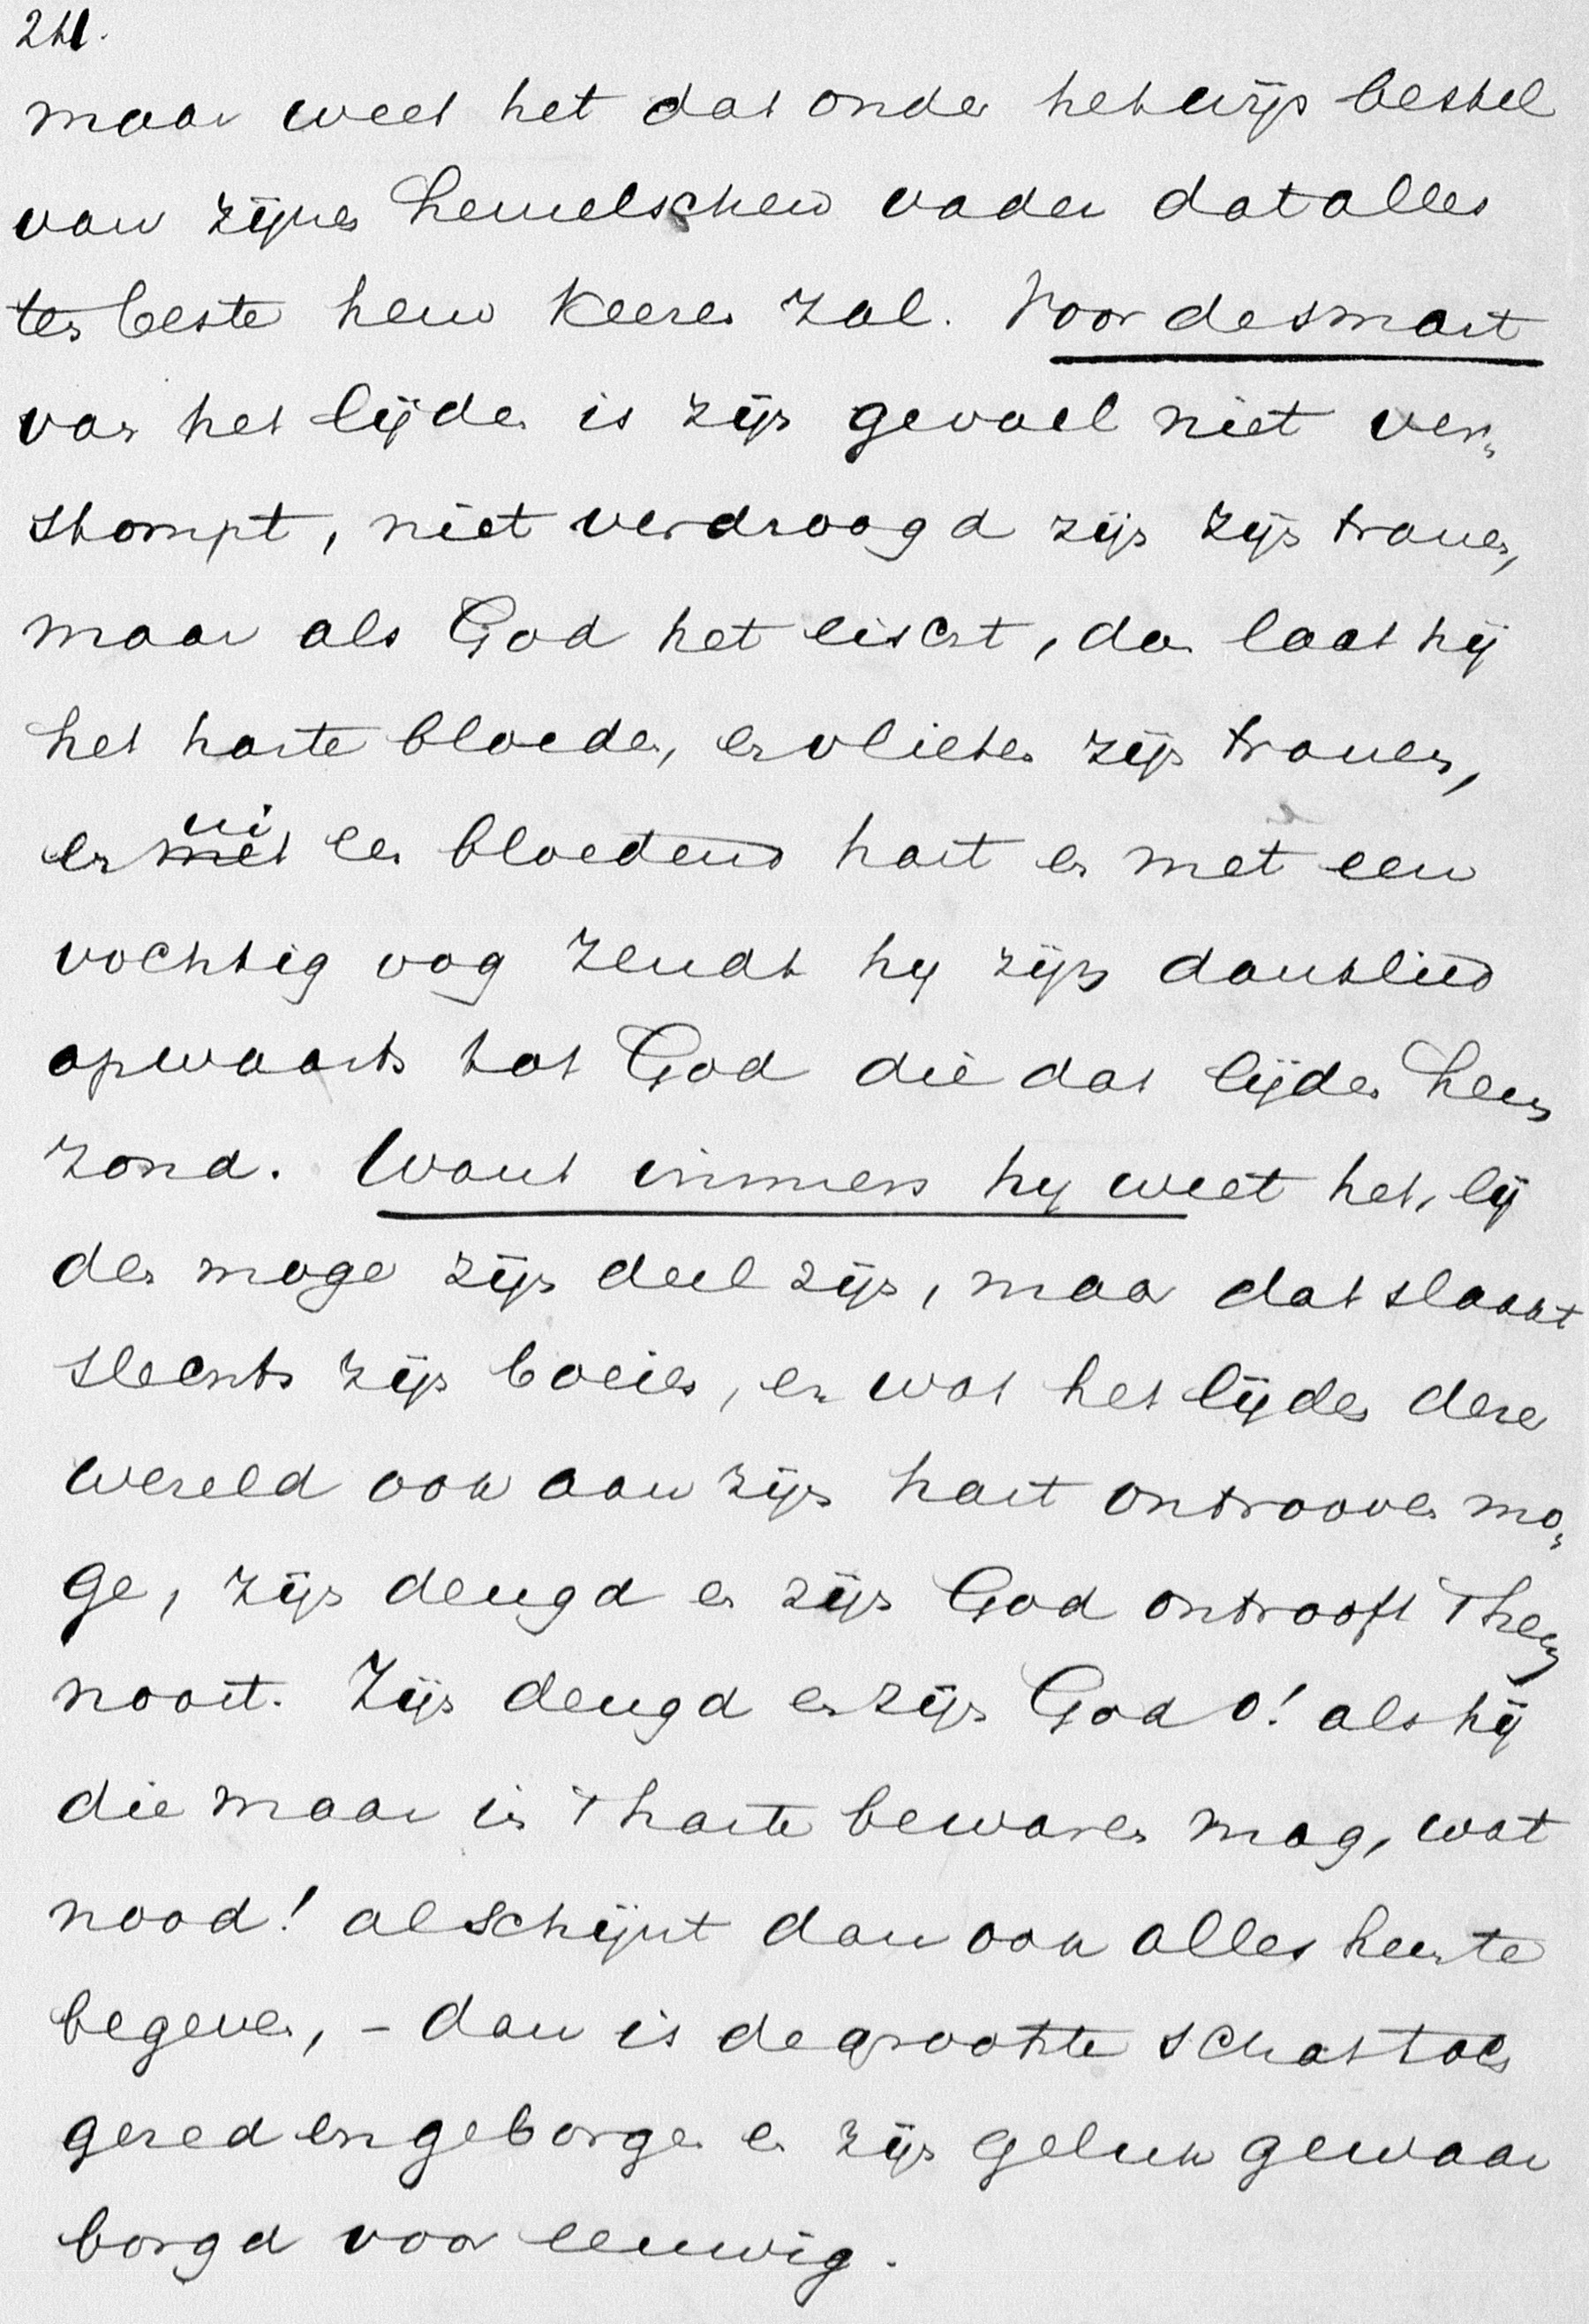 241.
maar weet het dat onder het wijs bestel
van zijnen hemelschen vader dat alles
ten beste hem keeren zal. Voor de smart
van het lijden is zijn gevoel niet ver„
stompt, niet verdroogd zijn zijn tranen,
maar als God het eischt, dan laat hij
het harte bloeden, en vlieten zijn tranen,
en met een bloedend hart en met een
vochtig oog zendt hy zijn danklied
opwaarts tot God die dat lijden hem
zond. Want immers hy weet het, lij
den moge zijn deel zijn, maar dat slaakt
slechts zijn boeien, en wat het lijden dezer
wereld ook aan zijn hart ontrooven mo„
ge, zijn deugd en zijn God ontrooft 't hem
nooit. Zijn deugd en zijn God o! als hij
die maar in 't harte bewaren mag, wat
nood! al schijnt dan ook alles hem te
begeven, - dan is de grootste schat toch
gered en geborgen en zijn geluk gewaar
borgd voor eeuwig.